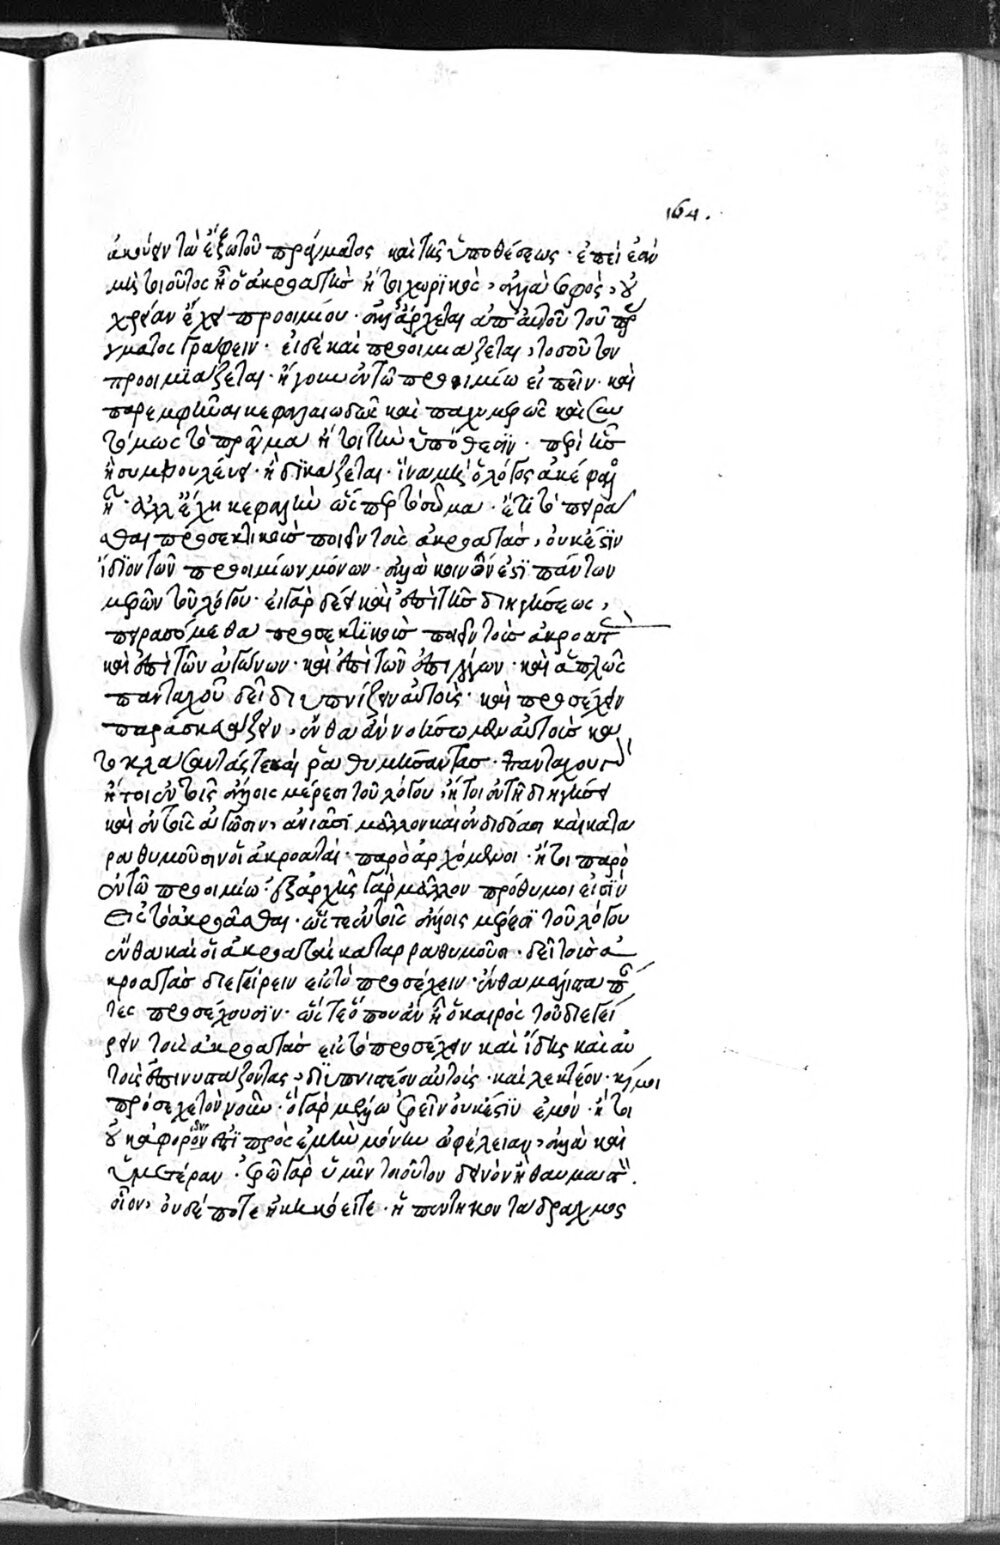 164.
ἀκούειν τῶ ἔξω τοῦ πράγματος καὶ τῆς ὑποθέσεως · ἐπεὶ ἐὰν
μὴ τοιοῦτος ἦ ὁ ἀκροατὴς ἤτοι χωρϊκὸς, ἀλλὰ σοφὸς, οὐ
χρείαν ἔχει προοιμίου · ἀλλ' ἄρχεται ἀπ' αὐτοῦ τοῦ πρά
γματος γράφειν · εἰ δὲ καὶ προοιμιάζεται, τοσοῦτον
προοιμϊάζεται · ἤγουν ἐν τῶ προοιμίω εἰπεῖν · καὶ
παρεμφῆναι κεφαλαιωδῶς καὶ παχυμερῶς καὶ συν
τόμως τὸ πρᾶγμα ἤτοι τὴν ὑπόθεσϊν · περὶ ἧς
ἢ συμβουλεύει · ἢ δϊκάζεται · ἵνα μὴ ὁ λόγος ἀκέφαλος
ἦ · ἀλλ' ἔχη κεφαλὴν ὥσπερ τὸ σῶμα · ἔτι τὸ πειρᾶ
σθαι προσεκτικοὺς ποιεῖν τοὺς ἀκροατὰς, οὐκ ἔστϊν
ἴδϊον τῶν προοιμίων μόνων · ἀλλὰ κοινόν ἐστϊ πάντων
μερῶν τοῦ λόγου · εἰ γὰρ δέει καὶ ἐπὶ τῆς διηγήσεως,
πειρασόμεθα προσεκτϊκοὺς ποιεῖν τοὺς ἀκροατὰς
καὶ ἐπὶ τῶν ἀγώνων · καὶ ἐπὶ τῶν ἐπιλόγων · καὶ ἁπλῶς
πανταχοῦ δεῖ διυπνίζειν αὐτοὺς · καὶ προσέχειν
παρασκευάζειν, ἔνθα ἂν νοήσωμεν αὐτοὺς κα
τοκλάσαντάς τε καὶ ῥαθυμήσαντας · πανταχοῦ γὰρ
ἤτοι ἐν τοῖς ἄλλοις μέρεσι τοῦ λόγου, ἤτοι ἐν τῆ διηγήσει
καὶ ἐν τοῖς ἀγῶσιν, ἀνιᾶσϊ μᾶλλον καὶ ἐνδιδόασι καὶ κατα
ραθυμοῦσιν οἱ ἀκροαταὶ · παρὸ ἀρχόμενοι · ἤτοι παρὸ
ἐν τῶ προοιμίω · ἐξαρχῆς γὰρ μᾶλλον πρόθυμοι εἰσϊν
εἰς τὸ ἀκροᾶσθαι · ὥστε ἐν τοῖς ἄλλοις μέρεσϊ τοῦ λόγου
ἔνθα καὶ οἱ ἀκροαταὶ καταρραθυμοῦσι · δεῖ τοὺς ἀ
κροατὰς διεγείρειν εἰς τὸ προσέχειν · ἔνθα μάλιστα πάν
τες προσέχουσϊν · ὥστε ὅπου ἂν ἦ ὁ καιρὸς τοῦ διεγεί
ρειν τοὺς ἀκροατὰς εἰς τὸ προσέχειν καὶ ἴδης καὶ αὐ
τοὺς ἐπινυστάζοντας, δϊϋπνιστέον αὐτοὺς · καὶ λεκτέον · καί μοι
πρόσεχετὸν νοῦν · ὃ γὰρ μέλλω ἐρεῖν οὐκ ἔστϊν ἐμόν · ἤτοι
οὐκ ἀφορᾶν ἐστϊ πρὸς ἐμὴν μόνην ὠφέλειαν, ἀλλὰ καὶ
ὑμετέραν · ἐρῶ γὰρ ὑμῖν τοιοῦτον δεινὸν ἢ θαυμαστὸν.
οἷον, οὐδέποτε ἠκηκόειτε · ἢ πεντήκοντα δραχμὰς